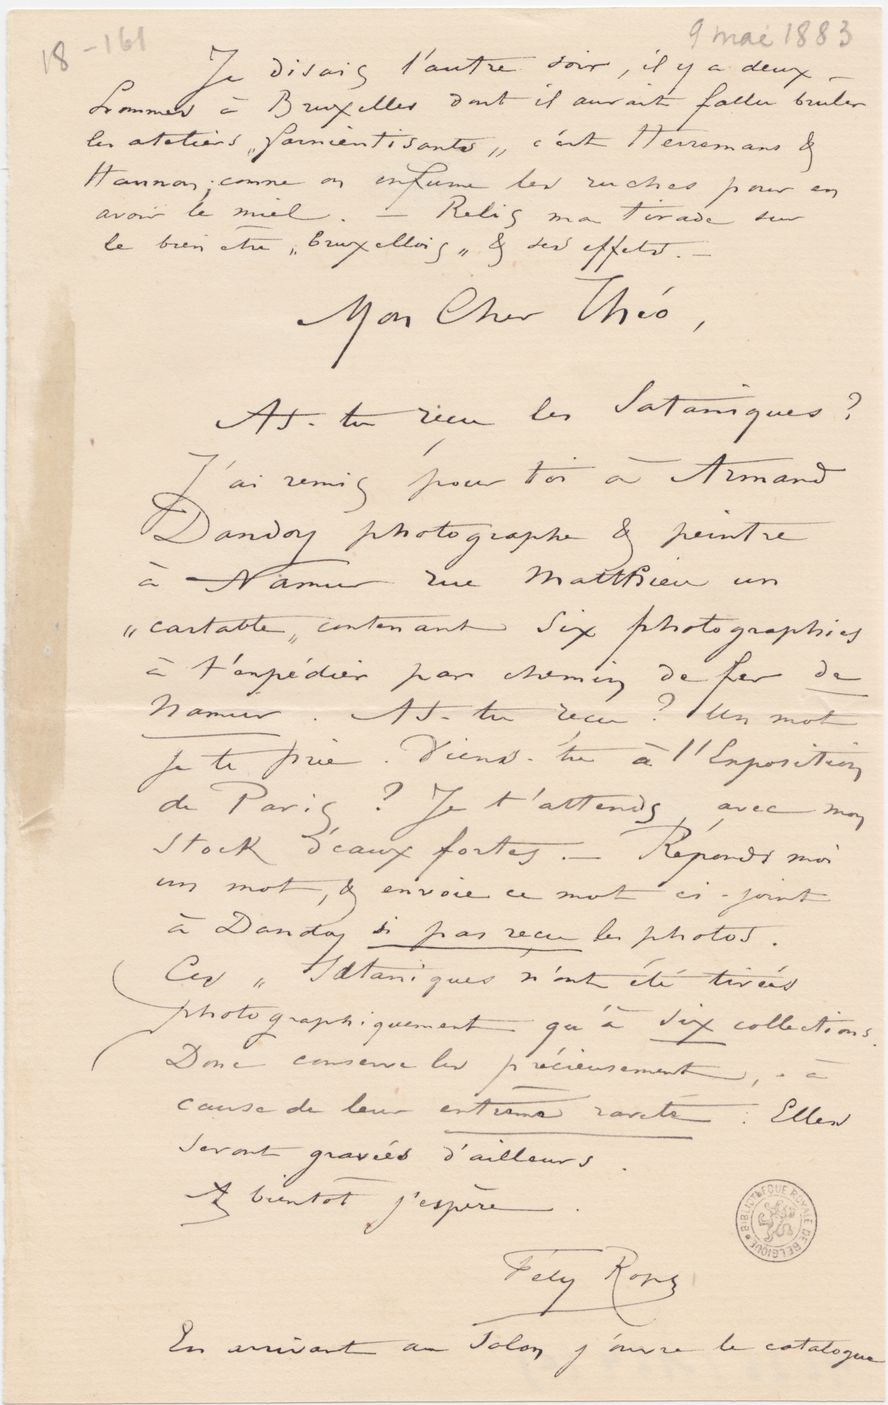 18-161
9 mai 1883
Je disais l'autre soir, il y a deux
hommes à Bruxelles dont il aurait fallu bruler
les ateliers „farnientisants„ c'est Herremans &
Hannon; comme on enfume les ruches pour en
avoir le miel. — Relis ma tirade sur
le bien être „bruxellois„ & ses effets. —
Mon Cher Théo,
As-tu reçu les Sataniques?
J'ai remis pour toi à Armand
Dandoy photographe & peintre
à Namur rue Matthieu un
„cartable„ contenant six photographies
à t'expédier par chemin de fer de
Namur. As-tu reçu? Un mot
je te prie. Viens-tu à l'Exposition
de Paris? Je t'attends avec mon
stock d'eaux fortes. — Réponds moi
un mot, & envoie ce mot ci-joint
à Dandoy si pas reçu les photos.
Ces „ Sataniques n'ont été tirées
photographiquement qu'à six collections.
Donc conserve les précieusement, à
cause de leur extrême rareté. Elles
seront gravées d'ailleurs.
A bientôt j'espère.
Fély Rops
BIBLIOTHEQUE ROYALE DE BELGIQUE
En arrivant au Salon j'ouvre le catalogue